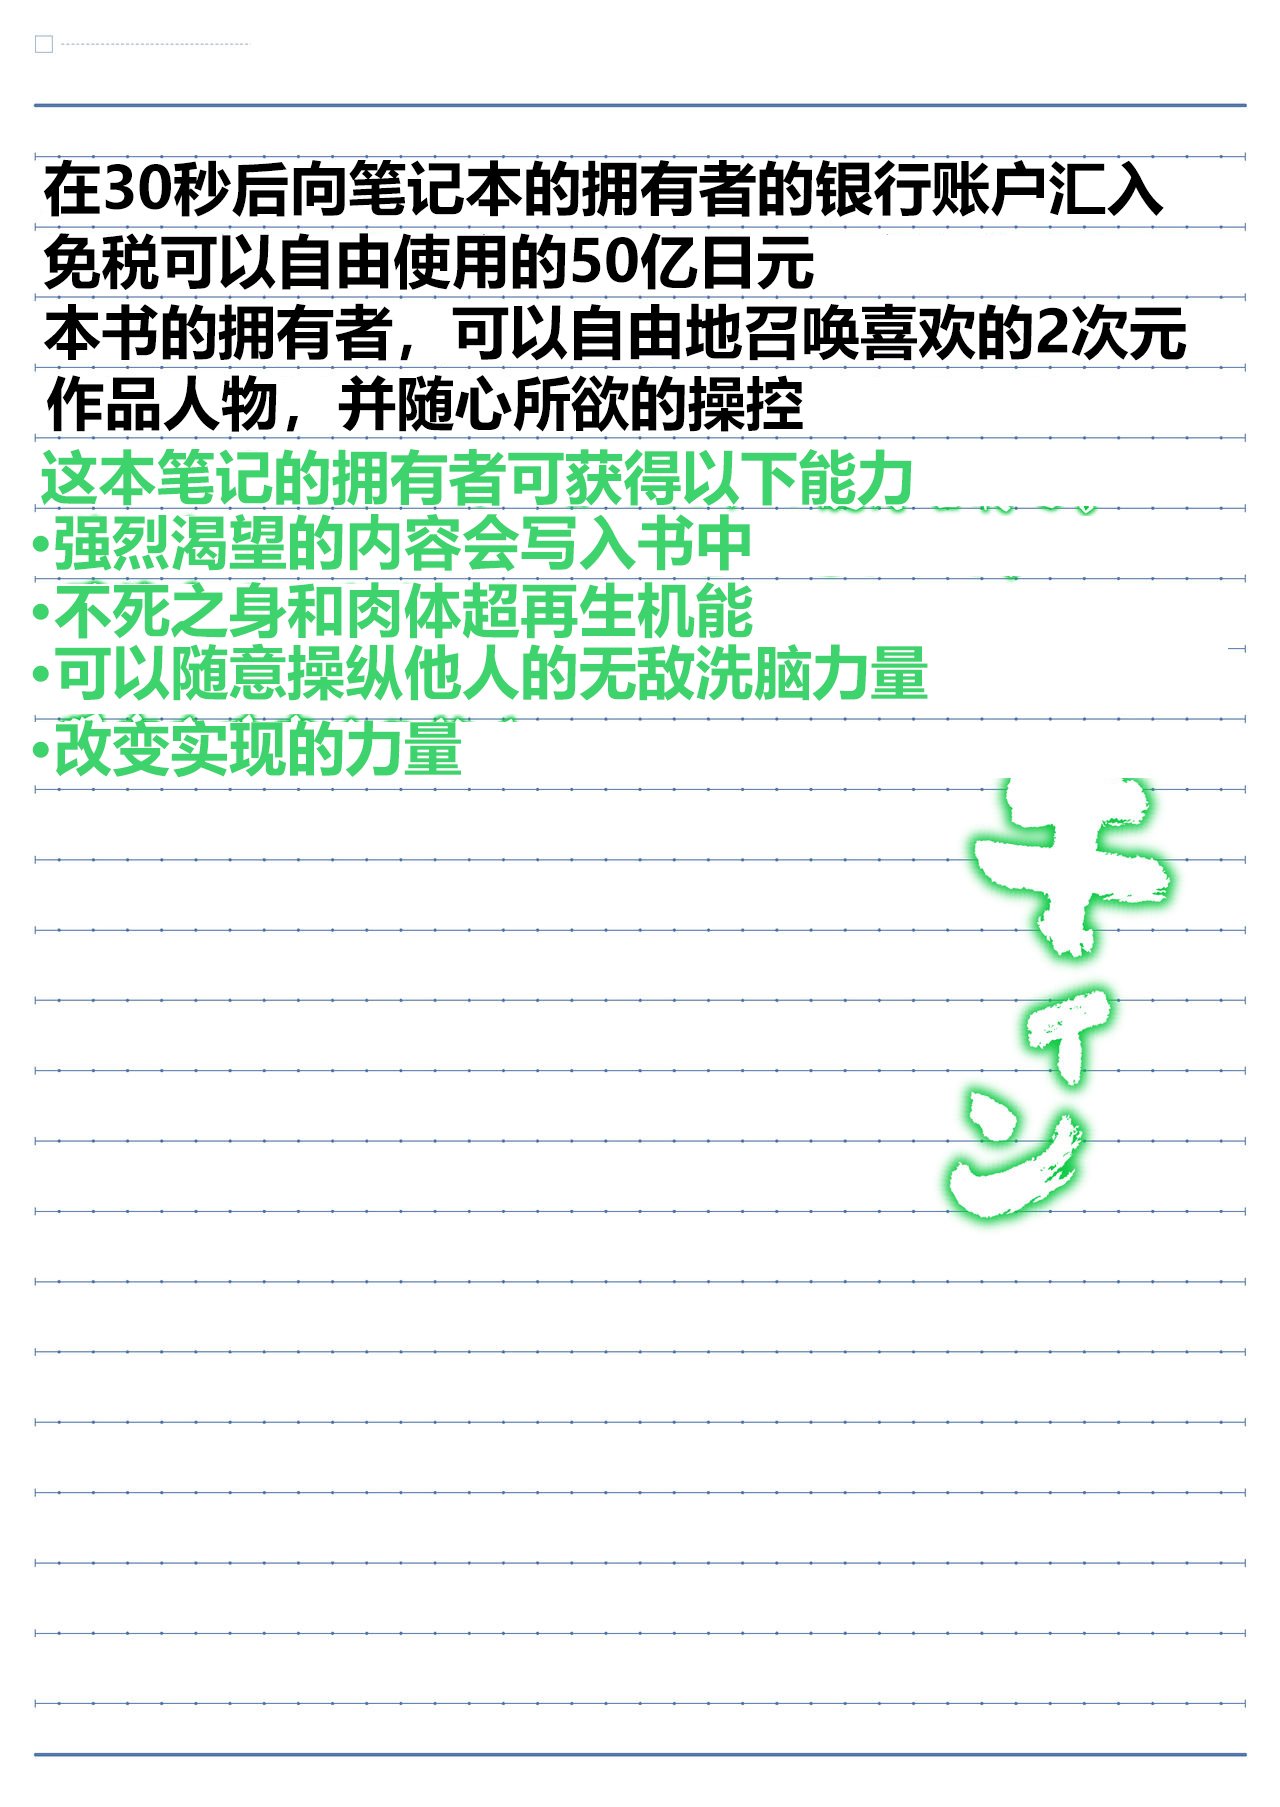 在30秒后向笔记本的拥有者的银行账户汇入
免税可以自由使用的50亿日元
本书的拥有者，可以自由地召唤喜欢的2次元
作品人物，并随心所欲的操控
这本笔记的拥有者可获得以下能力
•强烈渴望的内容会写入书中
•不死之身和肉体超再生机能
•可以随意操纵他人的无敌洗脑力量
•改变实现的力量
キィン